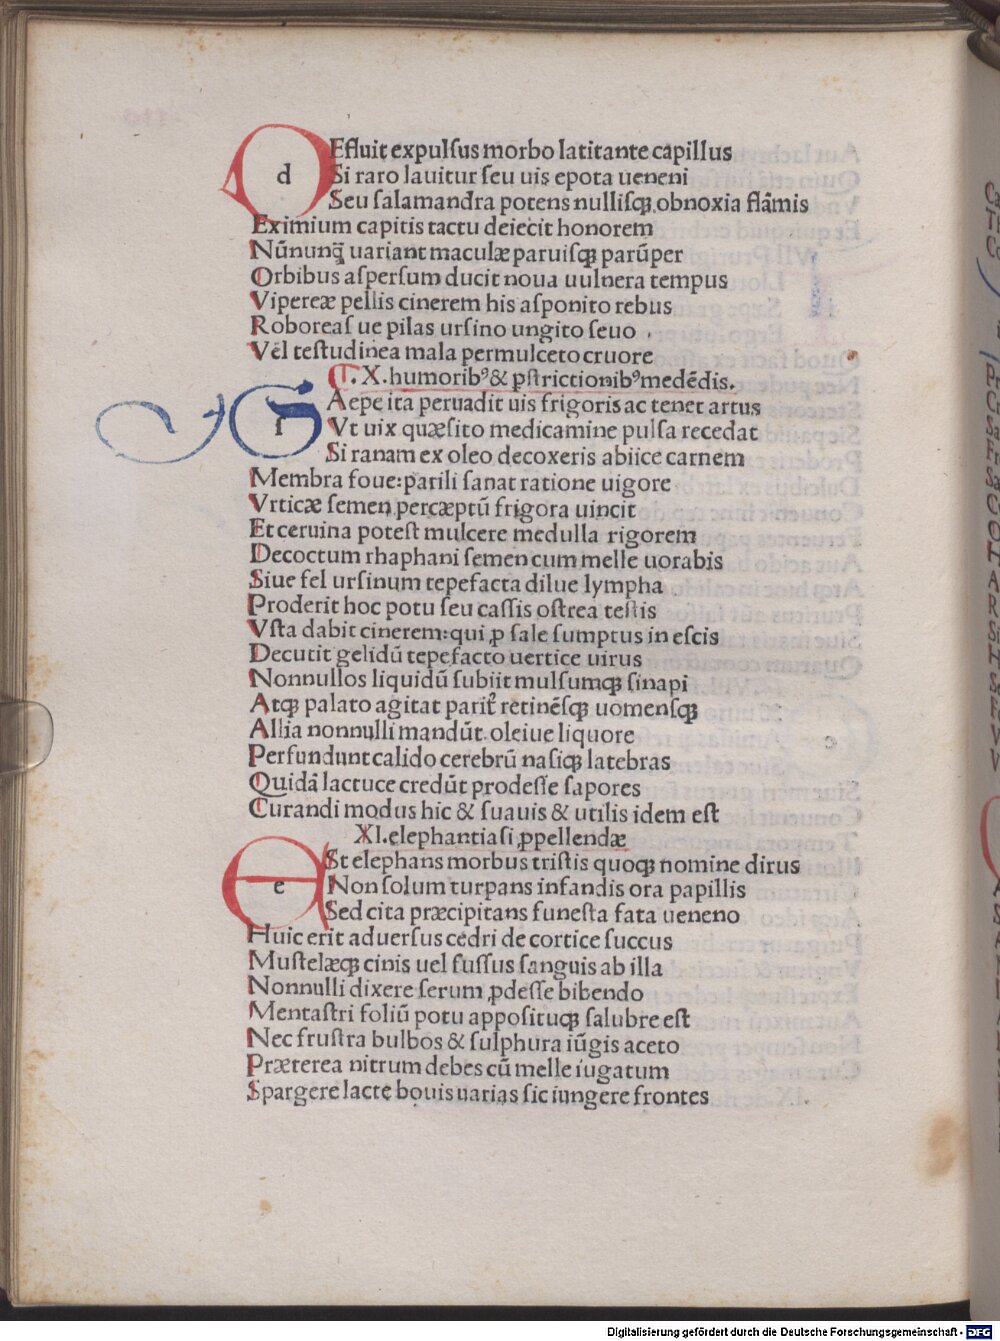 dEfluit expulſus morbo latitante capillus
Si raro lauitur ſeu uis epota ueneni
Seu ſalamandra potens nulliſqꝫ obnoxia flāmis
Eximium capitis tactu deiecit honorem
Nūnunꝗ̄ uariant maculæ paruiſqꝫ parūper
Orbibus aſperſum ducit noua uulnera tempus
Vipereæ pellis cinerem his aſponito rebus
Roboreaſ ue pilas urſino ungito ſeuo .
Vel teſtudinea mala permulceto cruore
.X. humoribꝰ & pſtrictionibꝰ medēdis.
ſAepe ita peruadit uis frigoris ac tenet artus
Vt uix quæſito medicamine pulſa recedat
Si ranam ex oleo decoxeris abiice carnem
Membra foue: parili ſanat ratione uigore
Vrticæ ſemen percæptū frigora uincit
Et ceruina poteſt mulcere medulla rigorem
Decoctum rhaphani ſemen cum melle uorabis
Siue fel urſinum tepefacta dilue lympha
Proderit hoc potu ſeu caſſis oſtrea teſtis
Vſta dabit cinerem: qui ꝓ ſale ſumptus in eſcis
Decutit gelidū tepefacto uertice uirus
Nonnullos liquidū ſubiit mulſumqꝫ ſinapi
Atqꝫ palato agitat parit᷑ retinēſqꝫ uomenſqꝫ
Allia nonnulli mandūt oleiue liquore
Perfundunt calido cerebrū naſiqꝫ latebras
Quidā lactuce credūt prodeſſe ſapores
Curandi modus hic & ſuauis & utilis idem eſt
XI. elephantiaſi ꝓpellendæ
eSt elephans morbus triſtis quoqꝫ nomine dirus
Non ſolum turpans infandis ora papillis
Sed cita præcipitans funeſta fata ueneno
Huic erit aduerſus cedri de cortice ſuccus
Muſtelæqꝫ cinis uel fuſſus ſanguis ab illa
Nonnulli dixere ſerum ꝓdeſſe bibendo
Mentaſtri foliū potu appoſituqꝫ ſalubre eſt
Nec fruſtra bulbos & ſulphura iūgis aceto
Præterea nitrum debes cū melle iugatum
Spargere lacte bouis uarias ſic iungere frontes
Digitalisierung gefördert durch die Deutsche Forschungsgemeinschaft - DFG